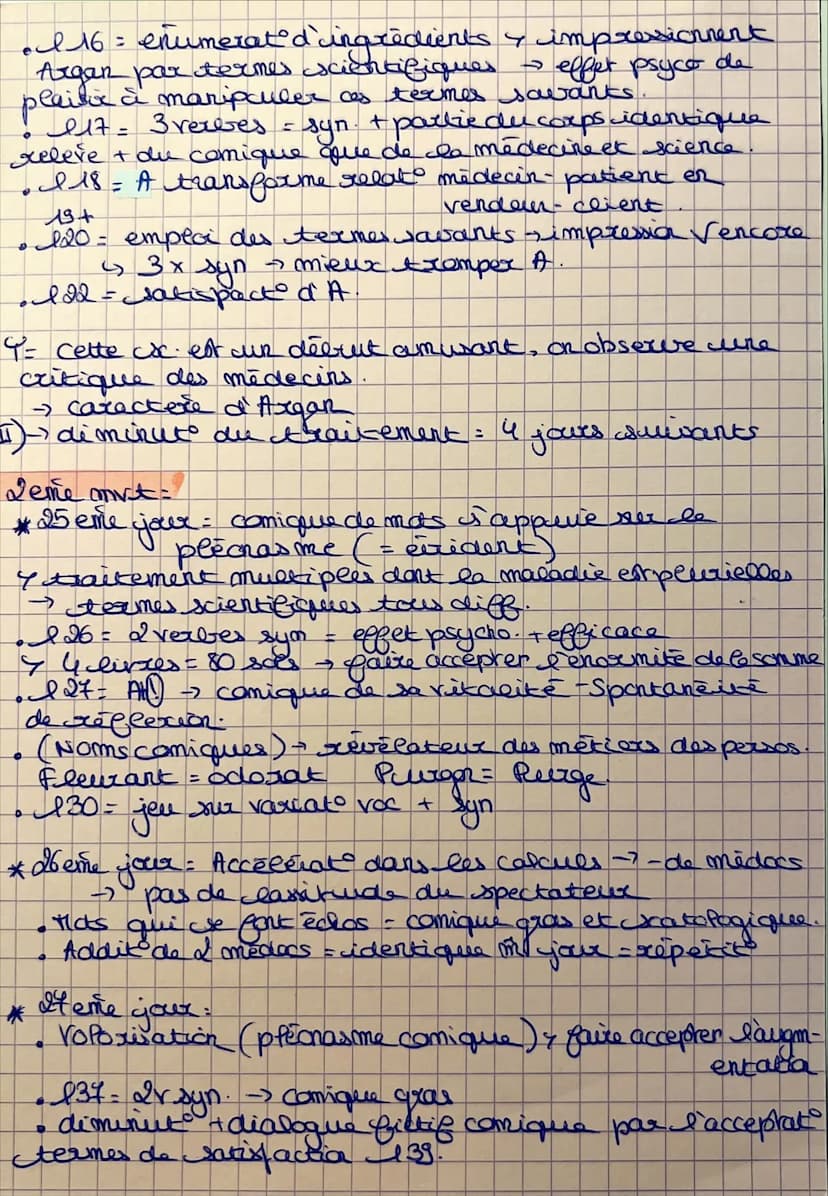 . l 16 = énumérat° d'ingrédients → impressionnent
Argan par termes scientifiques → effet psyco de
plaisir à manipuler ces termes savants.
. l17 = 3 verbes = syn. + partie du corps identique
relève + du comique que de la médecine et science.
. l 18 = A transforme relat° médecin - patient en
vendeur - client.
19+
. l20 = emploi des termes savants → impression encore
↳ 3 x syn → mieux tromper A.
. l 22 = satisfact° d'A.
= cette sc. est un début amusant, on observe une
critique des médecins.
→ caractère d'Argan
II) → diminut° du traitement = 4 jours suivants
2eme mvt =
* 25 eme jour = comique de mots s'appuie sur le
pléonasme (= évident)
traitement multiples dont la maladie est plurielles
→ termes scientifiques tous diff.
. l26 = 2 verbes syn = effet psycho. + efficace
4 livres = 80 sols → faire accepter l'énormité de la somme
. l27 = Ah → comique de sa vitalité - Spontanéité
de réflexion.
. (Noms comiques) → révélateur des métiers des persos.
Fleurant = odorat Purgon = Purge.
. l30 = jeu sur variat° voc + syn
* 26 eme jour = Accélérat° dans les calculs → - de médocs
→ pas de lassitude du spectateur
. Mots qui se font échos = comique gras et scatologique.
. Addit° de 2 médocs = identique m̂ jour = répétit°
* 27 eme jour :
. Valorisation (pléonasme comique) faire accepter l'augm-
entation
. l37 = 2v syn. → comique gras
. diminut° + dialogue fictif comique par l'acceptat°
termes de satisfaction l 39.